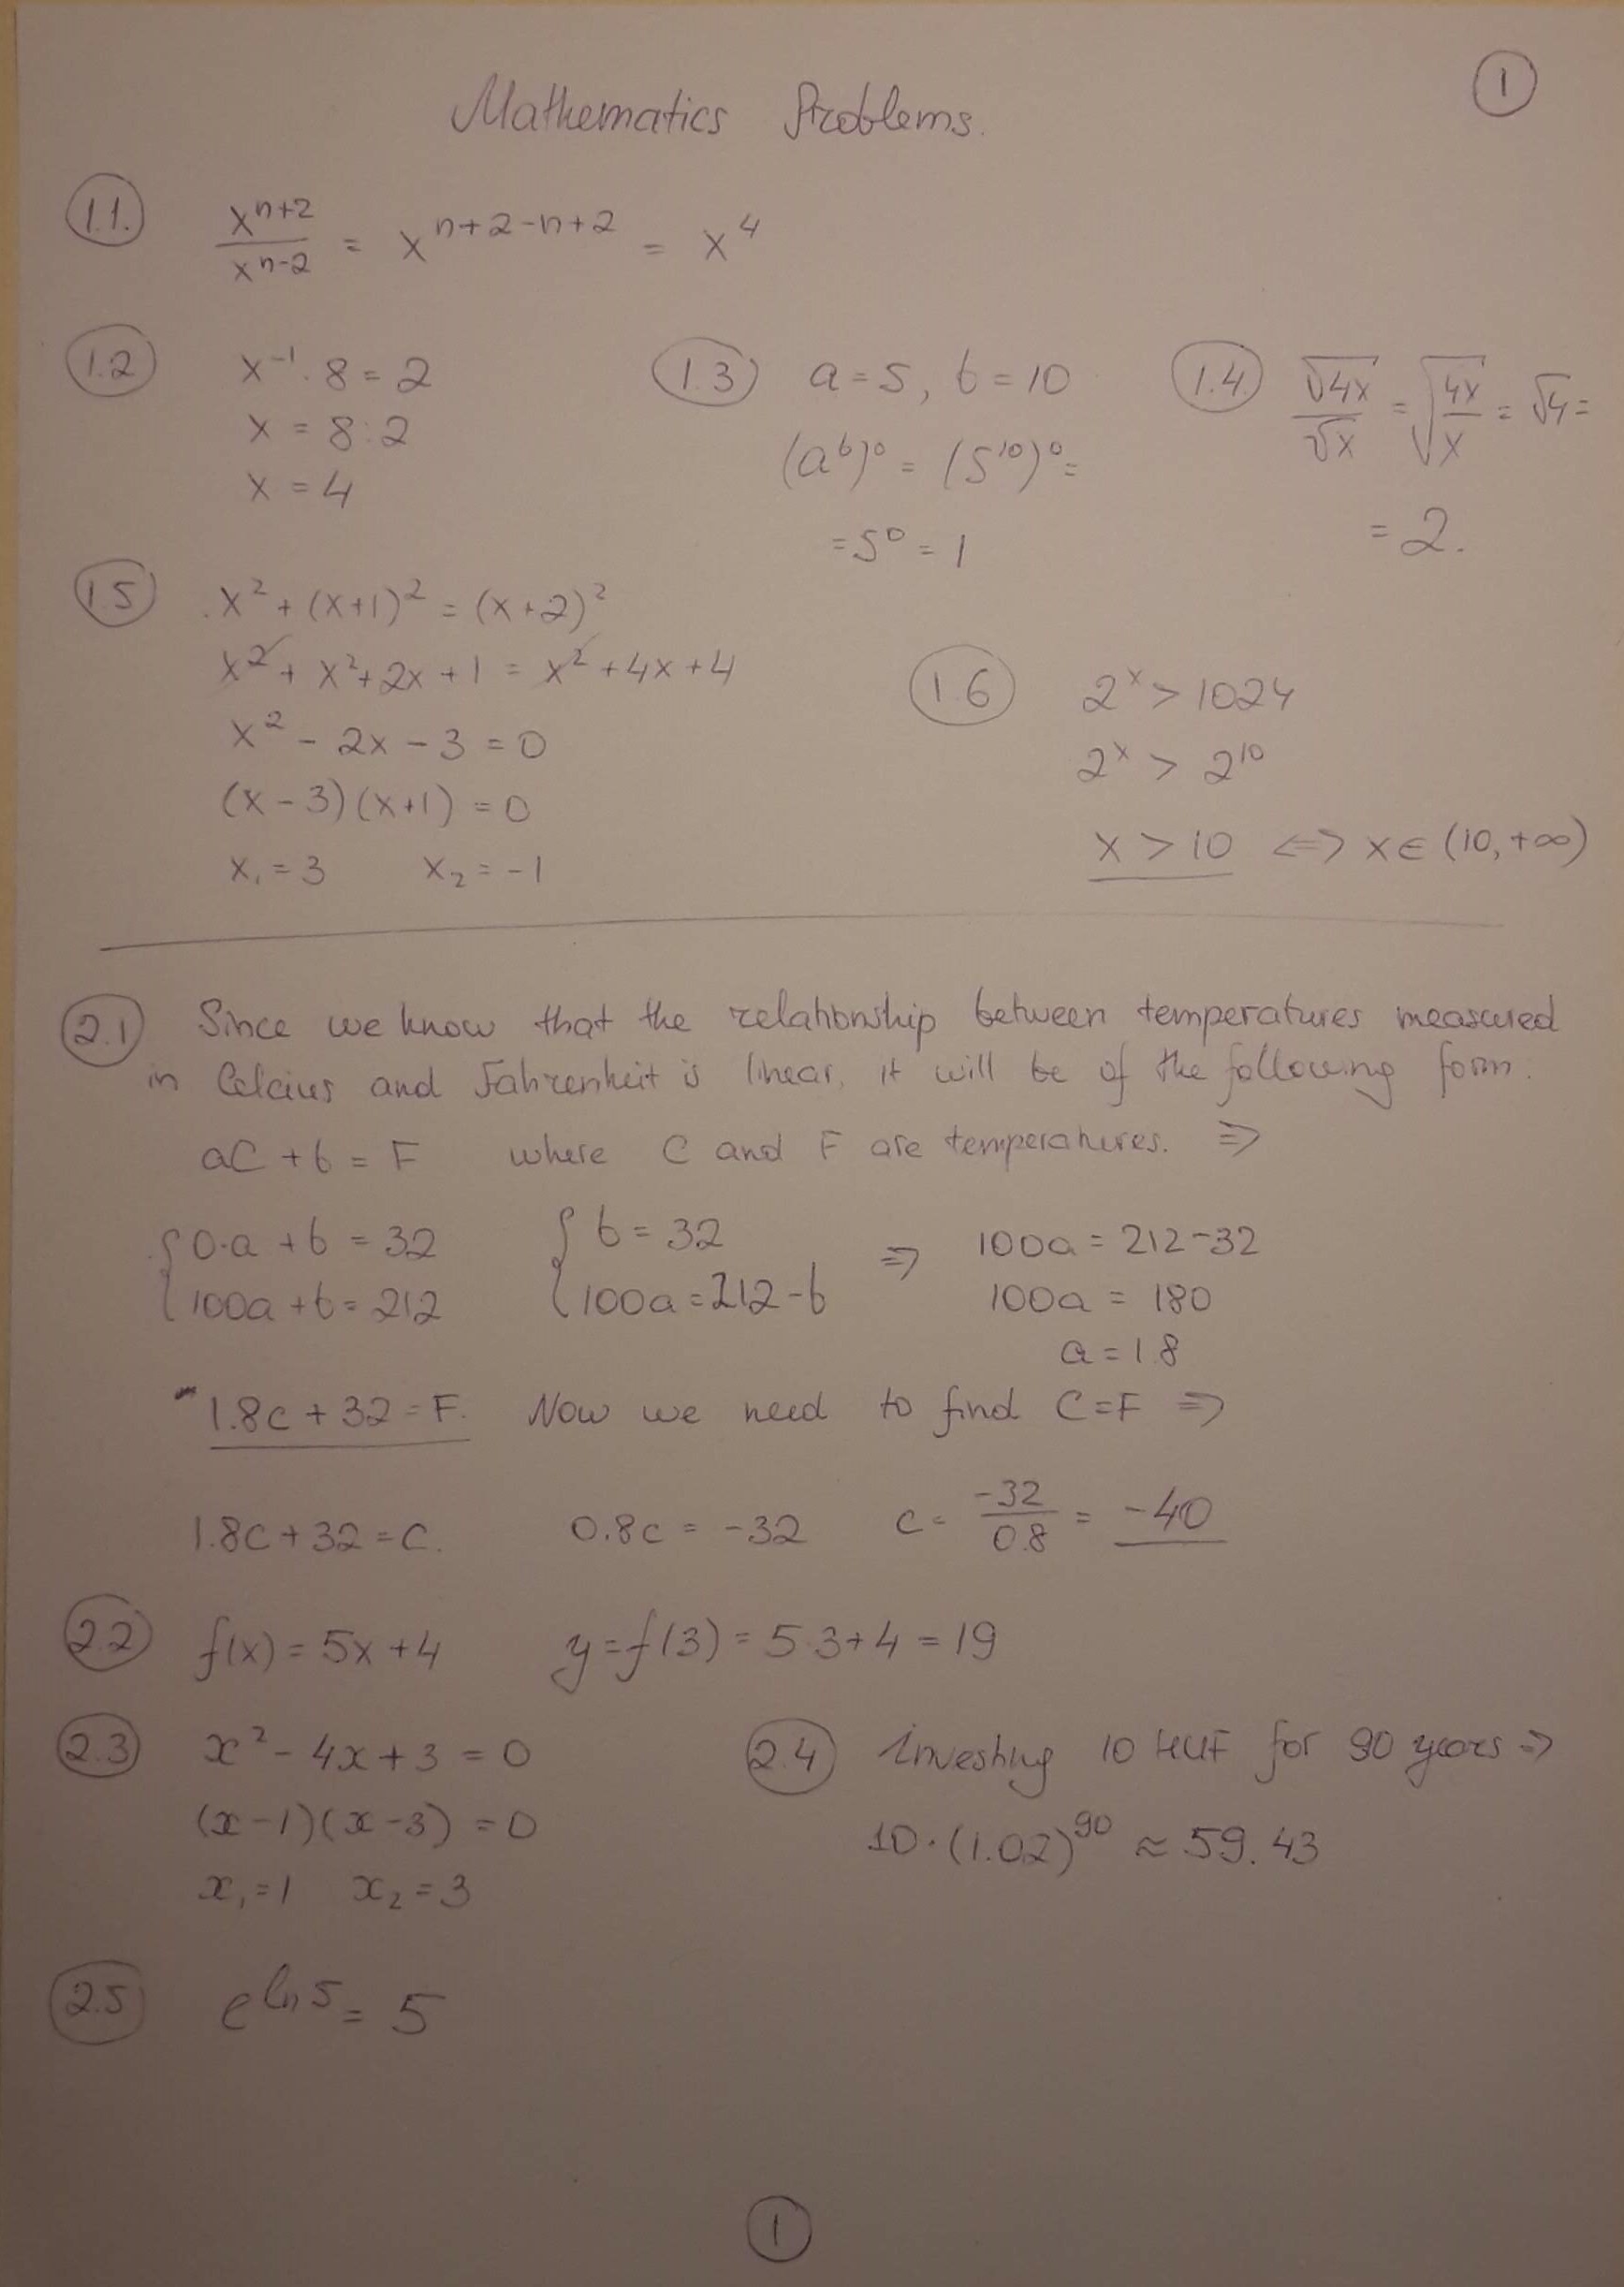 1
Mathematics Problems.
1.1. x^{n+2}/x^{n-2} = x^{n+2-n+2} = x^4
1.2 x^{-1} · 8 = 2
x = 8:2
x = 4
1.3 a = 5, b = 10
(a^b)^0 = (5^{10})^0 =
= 5^0 = 1
1.4. √4x/√x = √(4x/x) = √4 =
= 2.
1.5 x² + (x+1)² = (x+2)²
x² + x² + 2x + 1 = x² + 4x + 4
x² - 2x - 3 = 0
(x - 3)(x+1) = 0
x₁ = 3 x₂ = -1
1.6 2^x > 1024
2^x > 2^{10}
x > 10 <=> x ∈ (10, +∞)
2.1 Since we know that the relationship between temperatures measured
in Celcius and Fahrenheit is linear, it will be of the following form:
aC + b = F where C and F are temperatures. =>
{ 0·a + b = 32 { b = 32 => 100a = 212-32
{ 100a + b = 212 { 100a = 212 - b 100a = 180
a = 1.8
1.8c + 32 = F. Now we need to find C=F =>
1.8c + 32 = C. 0.8c = -32 c = -32/0.8 = -40
2.2 f(x) = 5x + 4 y = f(3) = 5·3 + 4 = 19
2.3 x² - 4x + 3 = 0
(x-1)(x-3) = 0
x₁ = 1 x₂ = 3
2.4 Investing 10 HUF for 90 years =>
10·(1.02)^{90} ≈ 59.43
2.5 e^{ln 5} = 5
1